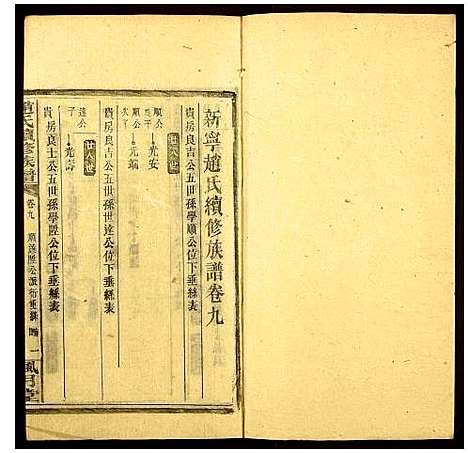 新寧趙氏續修族譜卷九
貴房良吉公五世孫學順公位下垂絲表
廿六世
順公
光安
順公
光瑞
貴房良吉公五世孫世達公位下垂絲表
廿六世
達公
子
光壽
貴房良士公五世孫學陞公位下垂絲表
趙氏續修族譜
卷九
順達陞公派衍垂絲
一
風月堂